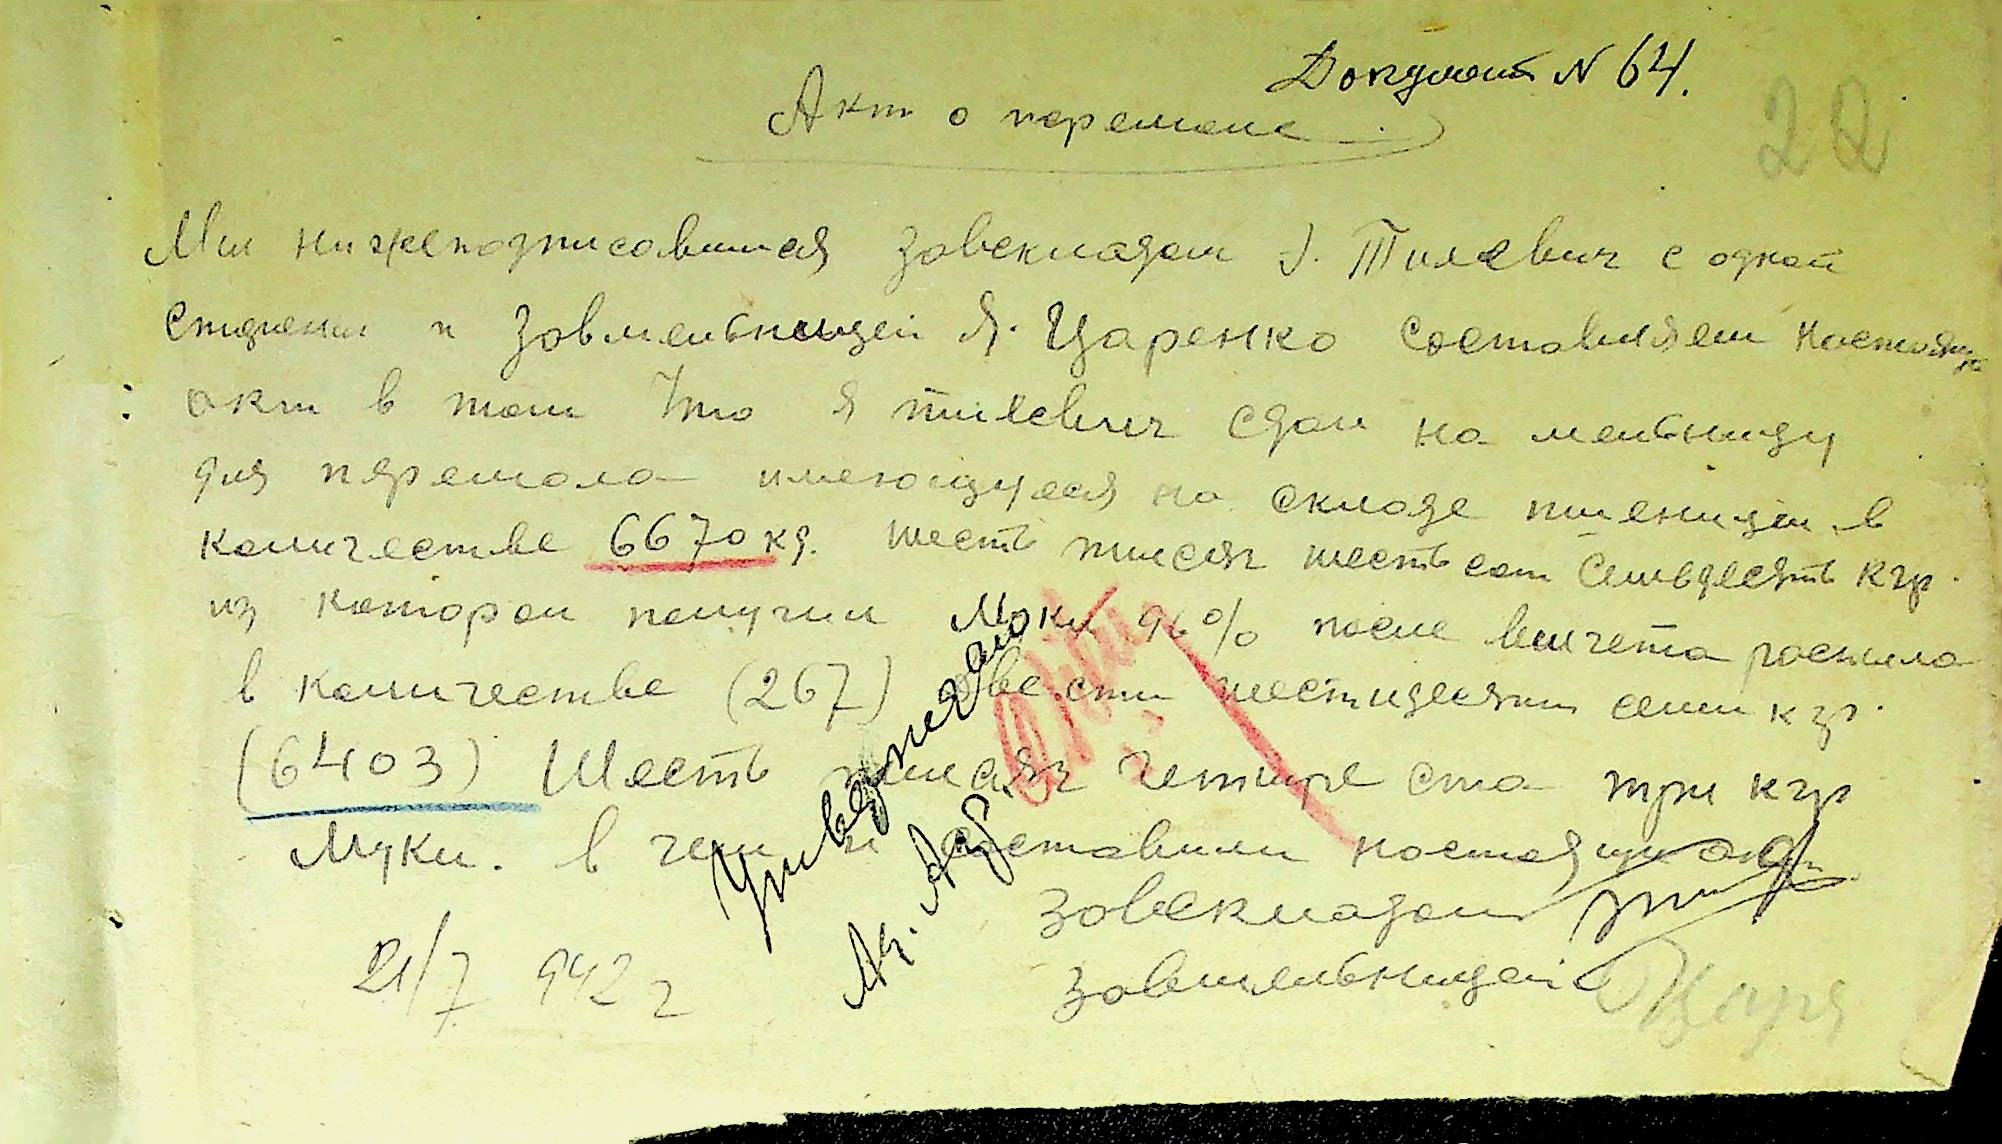 Документ N 64.
22
Акт о перемоле
Мы нижеподписавшиеся завскладом Тилевич с одной
стороны и завмельницей Я. Царенко составляем настоящ
акт в том что я тилевич сдал на мельницу
для перемола имеющуюся на складе пшеницы в
количестве 6670 кг. шесть тисяч шестьсот семьдесять кгр.
из которой получил Муки 96% после вычета распила
в количестве (267) двести шестидесят семи кгр.
(6403) Шесть тисяч четыре ста три кгр
Муки. в чем и составили настоящий акт
завскладом
завмельницей Царе
21/7 942 г
Утверждаю
Аг.